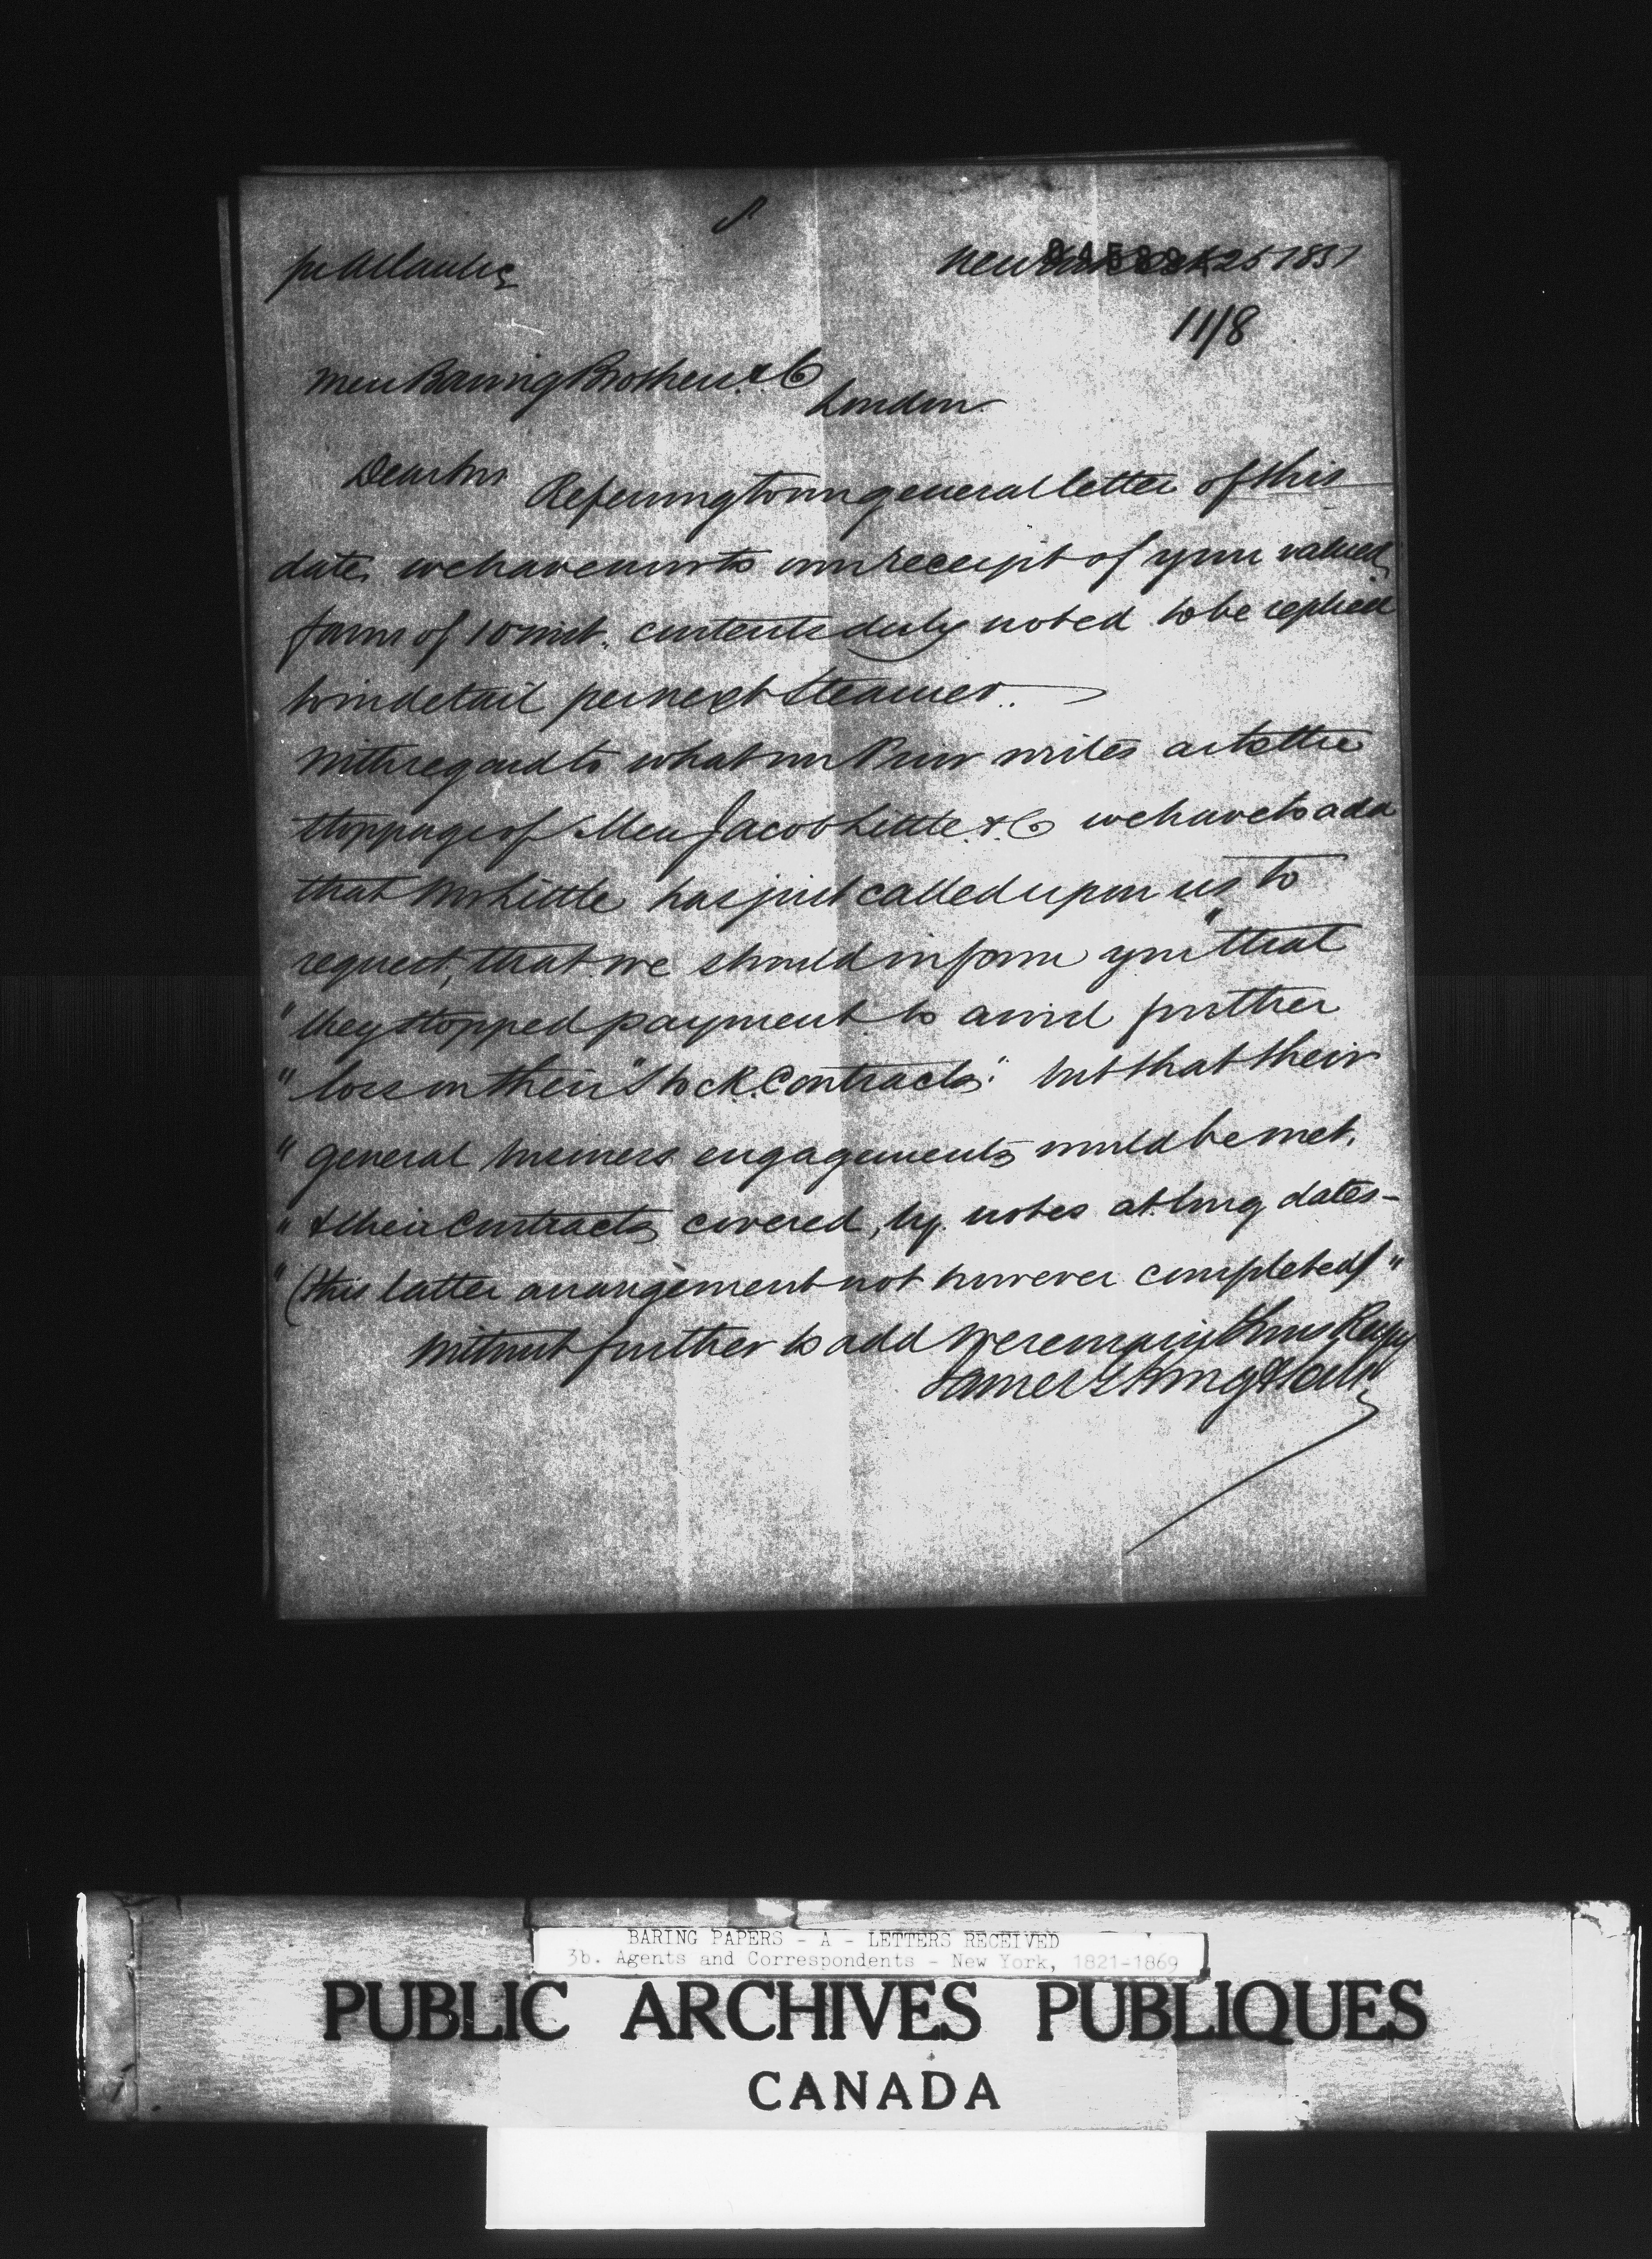 pr Atlantic
New York Oct 25 1851
11/8
Mess Baring Brothers & Co
London
Dear Sirs Referring to our general letter of this
date, we have now to own receipt of your valued
favor of 10 inst. contents duly noted to be replied
to in detail per next Steamer.
With regard to what our writes as to the
stoppage of Mess Jacob Little & Co we have to add
that Mr Little has just called upon us to
request, that we should inform you "that
" they stopped payment to avoid further
" loss on their "Stock Contracts" but that their
" general business engagements would be met,
" & their Contracts covered, by notes at long dates -
" (this latter arrangement not however completed) "
Without further to add We remain Yours Respy
James G King & Sons
BARING PAPERS - A - LETTERS RECEIVED
3b. Agents and Correspondents - New York, 1821-1869
PUBLIC ARCHIVES PUBLIQUES
CANADA